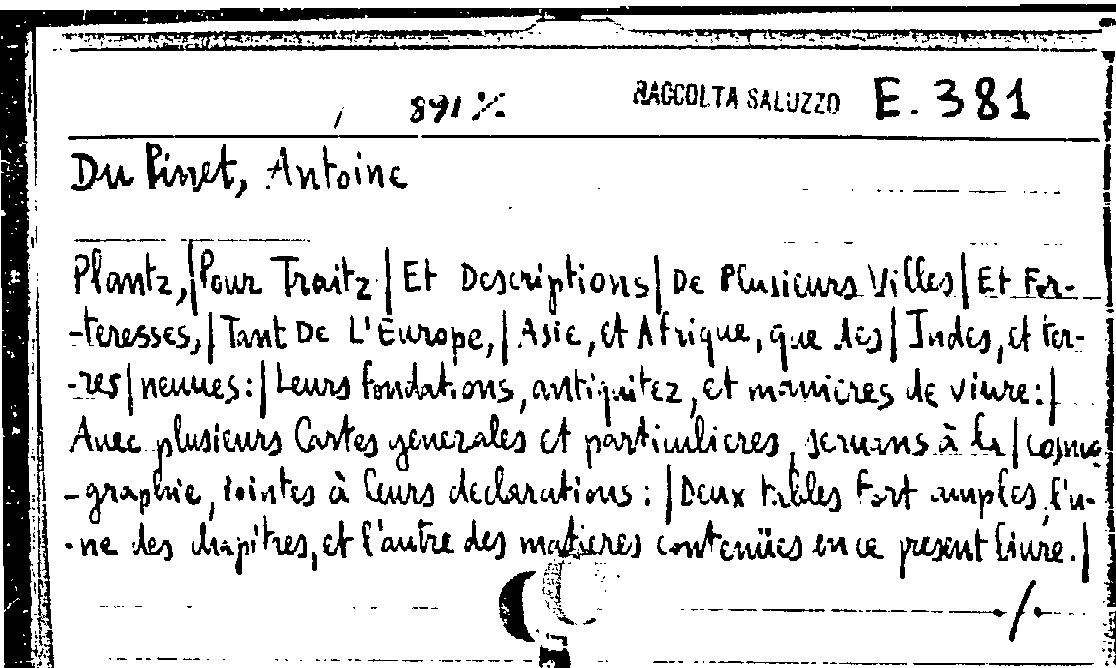 891 % RACCOLTA SALUZZO E. 381
Du Pinet, Antoine
Plantz,|Pour Traitz|Et Descriptions|De Plusieurs Villes|Et For-
-teresses,|Tant De L'Europe,|Asie, et Afrique, que des|Indes, et ter-
-res|neuues:|Leurs fondations, antiquitez, et manieres de viure:|
Auec plusieurs Cartes generales et particulieres, seruans à la|cosmo
-graphie, iointes à leurs declarations:|Deux tables fort amples, l'u-
-ne des chapitres, et l'autre des matieres contenües en ce present liure.|
./.